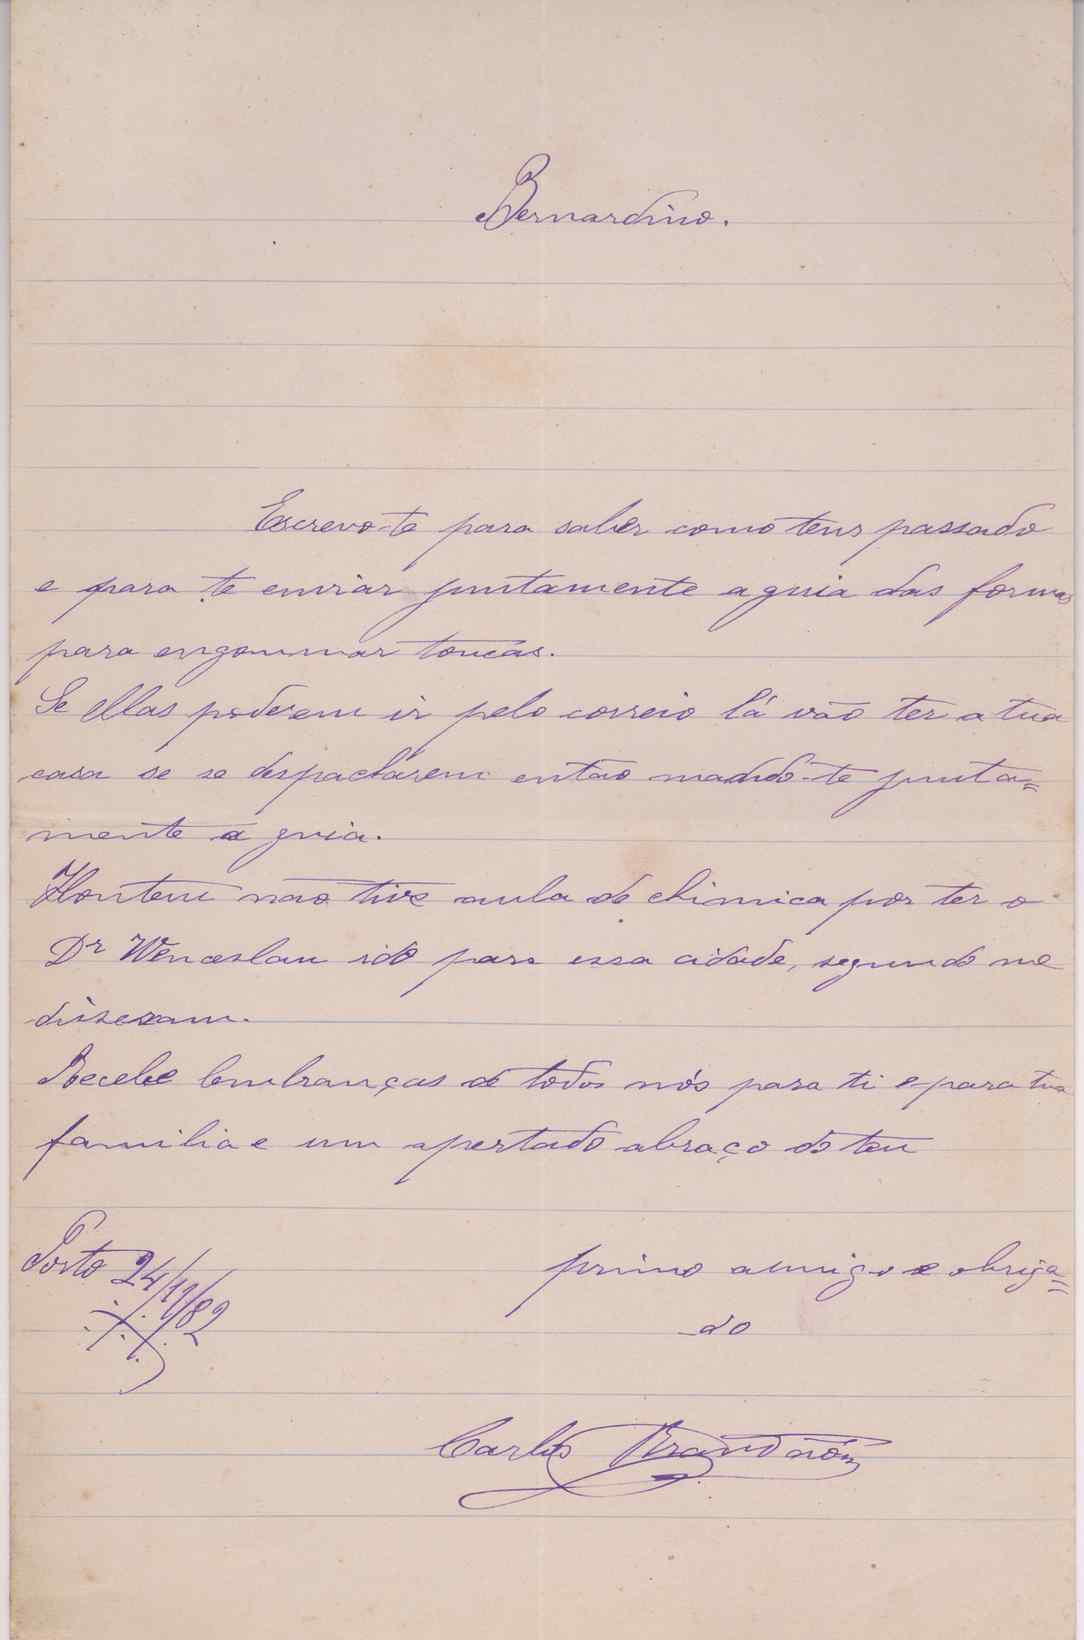 Bernardino.
Escrevo-te para saber como tens passado
e para te enviar juntamente a guia das formas
para engommar toucas.
Se ellas poderem ir pelo correio lá vão ter a tua
casa se se despacharem então mando-te junta=
mente a guia.
Hontem não tive aula de chimica por ter o
Dr Wenceslau ido para essa cidade, segundo me
disseram.
Recebe lembranças de todos nós para ti e para tua
familia e um apertado abraço do teu
Porto 24/11/82
primo amigo e obriga=
do
Carlos Brandão